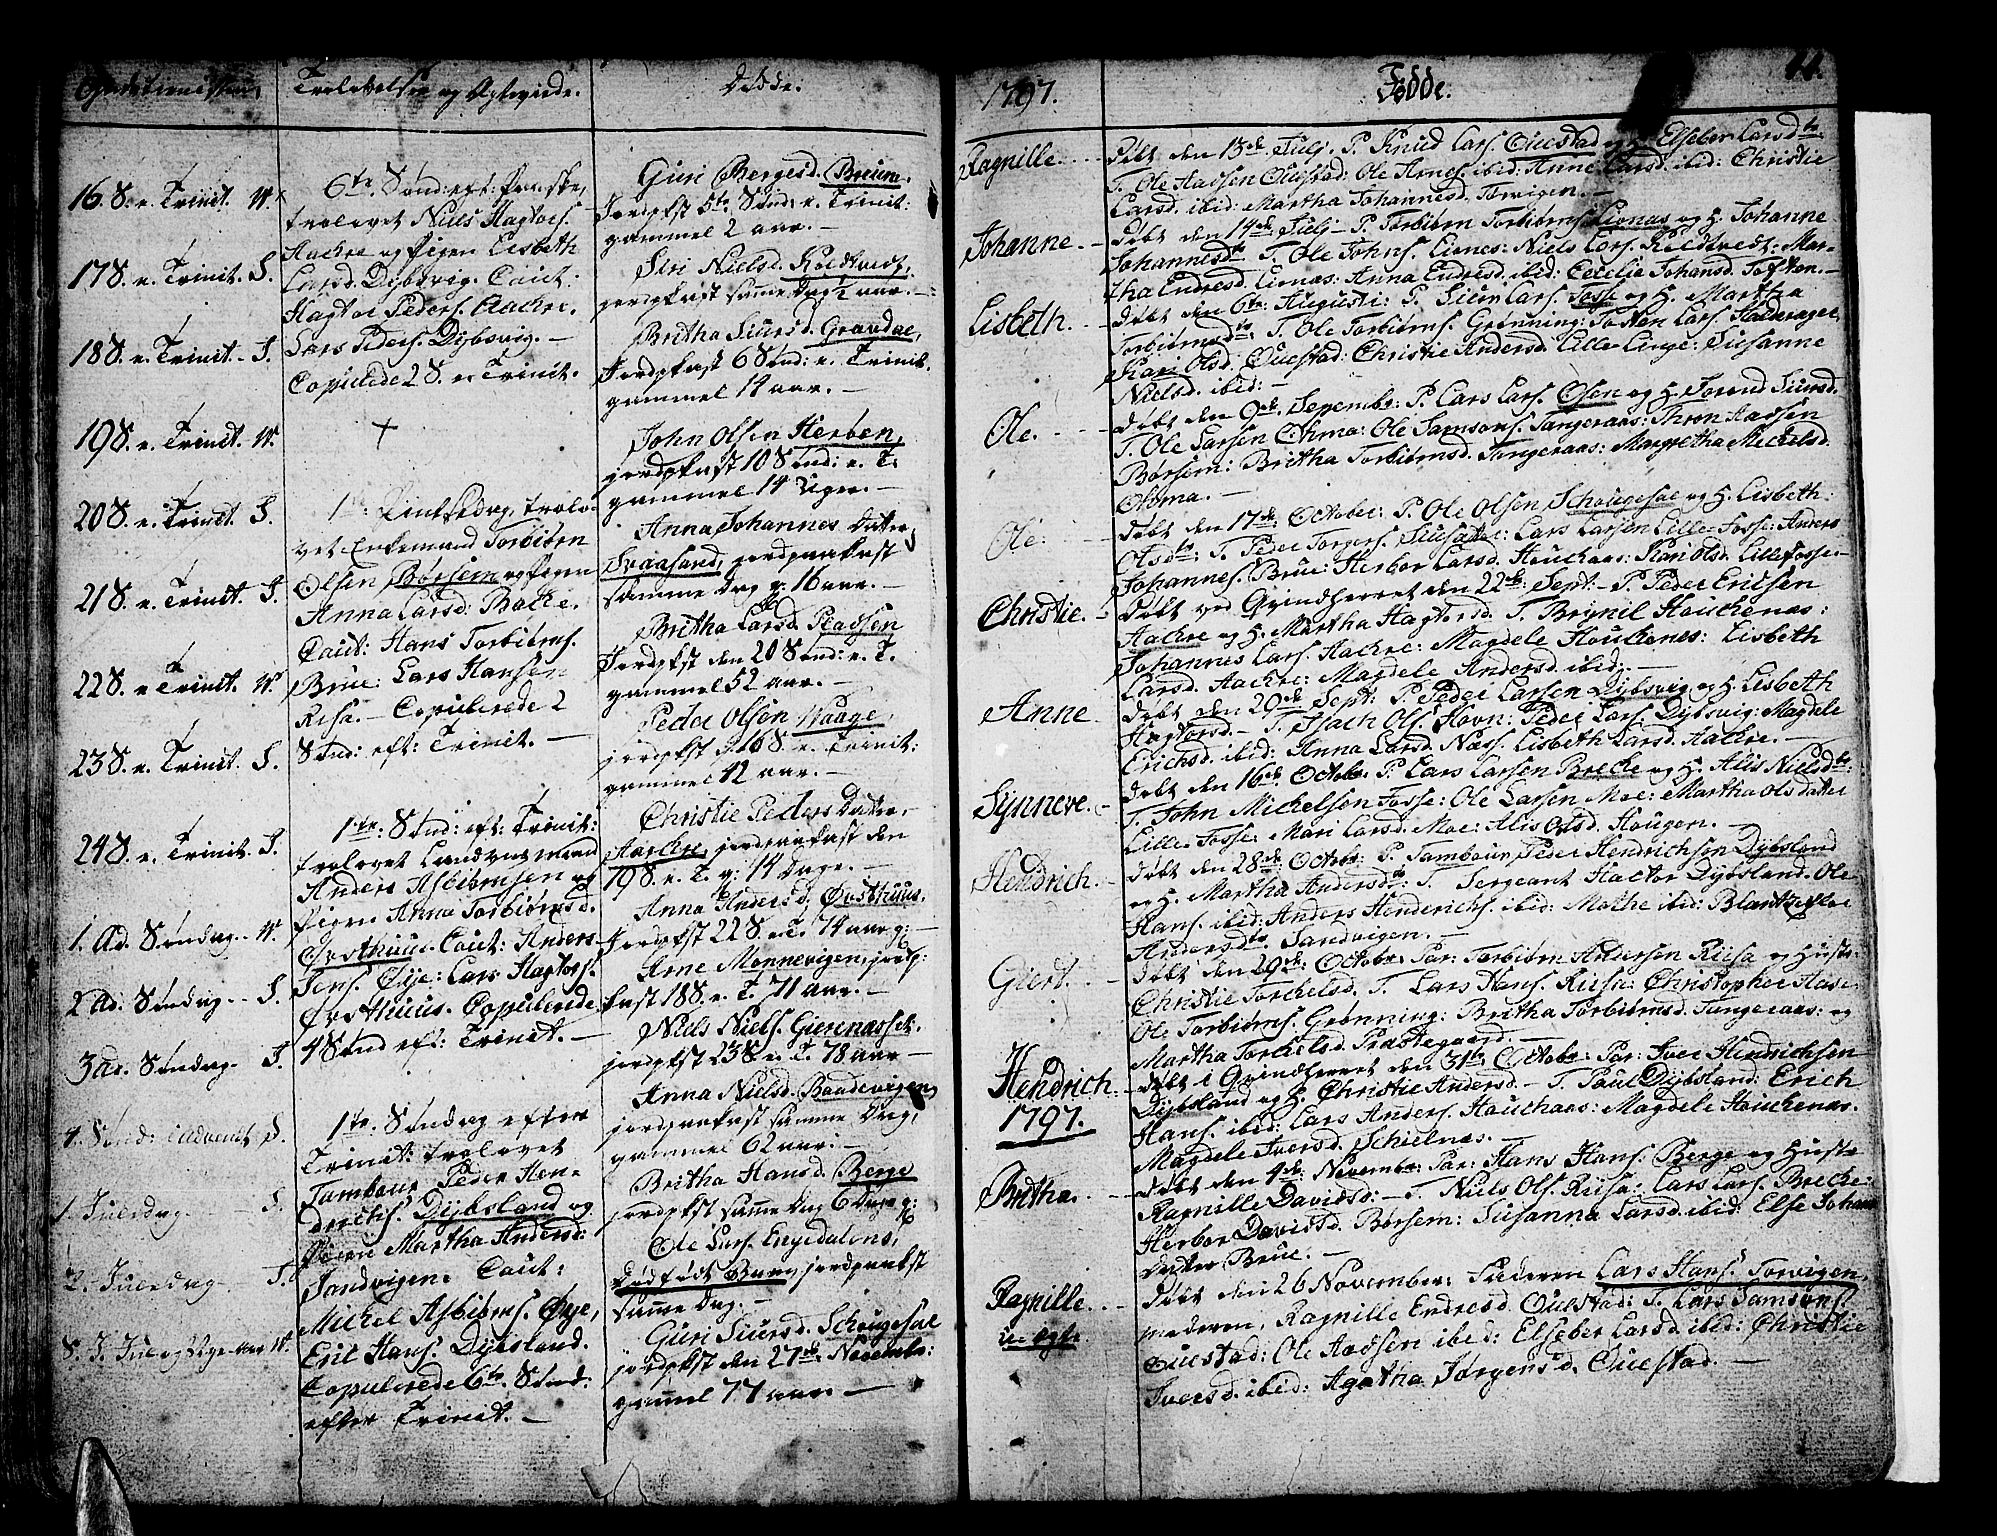 Trolovelser og Egteviede.
Døde.
16 S. e. Trinit. W.
17 S. e. Trinit. S.
18 S. e. Trinit. S.
19 S. e. Trinit. W.
20 S. e. Trinit. S.
21 S. e. Trinit. S.
22 S. e. Trinit. W.
23 S. e. Trinit. S.
24 S. e. Trinit. S.
1. Ad. Søndag W.
2 Ad. Søndag S.
3 Ad. Søndag S.
4. Sønd: i Advent S.
1. Juledag S.
2. Juledag S.
6te Sønd: eft: Paaske,
trolovet Niels Hagtors.
Aackre og Pigen Lisbeth
Larsd. Dybsvig. Caut:
Hagtor Peders. Aackre.
Lars Peders. Dybsvig. –
Copulerede 2 S. e. Trinit.
+
1te Pintsedag, trolo-
vet Enkemand Torbiørn
Olsen Børsem og Pigen
Anna Larsd: Backe.
Caut: Hans Torbiørns.
Brue: Lars Hansen
Risa. – Copulerede 2
Sønd: eft: Trinit. –
1te Sønd: eft: Trinit:
trolovet Landværnmand
Anders Asbiørnsen og
Pigen Anna Torbiørnsd.
Øvsthuus. Caut: Anders
Jens. Øye: Lars Hagtors.
Øvsthuus. Copulerede
4 Sønd eft: Trinit. –
1te Søndag efter
Trinit: trolovet
Tambour Peder Hen-
drichs. Dybsland og
Pigen Martha Andersd:
Sandvigen. Caut:
Michel Asbiørns. Øye,
Eric Hans. Dybsland.
Copulerede 6te Sønd.
efter Trinit. –
Guri Bergesd. Breiun,
Jordpkst 5te Sønd. e. Trinit:
gammel 2 aar. –
Siri Nielsd. Roedtvedt,
jordpkast samme Dag 2 aar. –
Britha Siursd. Gravdae,
Jordpkast 6 Sønd: e. Trinit.
gammel 14 aar. –
John Olsen Herben,
jordpkast 10 Sønd: e. T.
gammel 14 Uger. –
Anna Johannes Datter
Svaasand, jordpaakast
samme Dag g: 16 aar. –
Britha Larsd. Pladsen
Jordpkst den 20 Sønd: e. T.
gammel 52 aar. –
Peder Olsen Waage,
jordpkst d 16 S. e. Trinit:
gammel 42 aar. –
Christie Peders Datter,
Aackre, jordpaakast den
19 S. e. T. g: 14 Dage. –
Anna Andersd. Øvsthuus.
Jordpkst 22 S. e. T. 74 aar g: –
Arne Monnevigen, jordp:
kast 18 S. e. T. 71 aar. –
Niels Niels. Giermasset.
jordpkst 23 S. e. T. 78 aar –
Anna Nielsd. Baadevigen,
jordpaakast samme Dag,
gammel 62 aar: –
Britha Hansd. Berge
jordpkst samme Dag 6 Dage g:
Ole Lars. Engedalens,
Dødfødt Barn, jordpaakst
samme Dag. –
Guri Siursd. Schougesae
jordpkst den 27de Novembr:
gammel 77 aar. –
1797.
Fødde.
Ragnille. Døbt den 13de Julj. P. Knud Lars. Questad og H. Elseber Larsdtr
T. Ole Aadsen Questad: Ole Arnes. ibid: Anne Larsd. ibid: Christie
Larsd. ibid: Martha Johannesd. Torvigen. –
Johanne. Døbt den 14de Julj – P. Torbiørn Torbiørns. Lionæs og H. Johanne
Johannesdtr T. Ole Johns. Lionæs: Niels Lars. Roedtvedt: Mar-
tha Endresd. Lionæs: Anna Endresd. ibid: Cecelie Johansd. Toften. –
Lisbeth. Døbt den 6te Augusti: P. Siur Lars. Fosse og H. Martha
Torbiørnsdtr T. Ole Torbiørns. Grønning: Tosten Lars. Halderager,
Kari Olsd. Questad: Christie Andersd. Lille Linge: Susanne
Nielsd. ibid: –
Ole. Døbt den 9de Septembr: P. Lars Lars. Olsen og H. Torend Siursd.
T. Ole Larsen Ohma: Ole Samsons. Tangeraas: Thron Aadsen
Børsem: Britha Torbiørnsd. Tangeraas: Magretha Michelsd.
Ohma. –
Ole. Døbt den 17de October: P. Ole Olsen Schougesae og H. Lisbeth
Olsdtr T. Peder Torgers. Siusætter: Lars Larsen Lille Fosse: Anders
Johannes. Brue: Herbor Larsd. Houchaas: Kari Olsd. Lille Fosse –
Christie. Døbt ved Qvindherret den 22de Sept – P. Peder Ericsen
Aackre og H. Martha Hagtorsd. T. Brynil Houchenæs:
Johannes Lars. Aackre: Magdele Houchenes: Lisbeth
Larsd. Aackre: Magdele Andersd. ibid: –
Anne Døbt den 29de Sept: P. Peder Larsen Dybsvig, og H. Lisbeth
Hagtorsd. – T. Isach Ols. Hovn: Peder Lars. Dybsvig: Magdele
Erichsd. ibid: Anna Larsd. Næss. Lisbeth Larsd. Aackre. –
Synneve. Døbt den 16de Octobr. P. Lars Larsen Brecke og H. Alis Nielsdtr:
T. John Michelsen Fosse: Ole Larsen Moe: Martha Ols datter
Lille Fosse: Mari Larsd. Moe: Alis Olsd. Hougen. –
Hendrich. Døbt den 28de Octobr P. Tambour Peder Hendrichsen Dybsland
og H. Martha Andersdtr T. Sergeant Hactor Dybsland. Ole
Hans. ibid: Anders Henderichs. ibid: Mothe ibid: Blantzeflor
Andersdtr Sandvigen. –
Giert. Døbt den 29de Octobr. Par: Torbiørn Andersen Riisa og Hustr:
Christie Torchelsd. T. Lars Hans. Riisa: Christopher Hase
Ole Torbiørns. Grønning: Britha Torbiørnsd. Tangeraas: og
Martha Torchelsd. Præstegaard. –
Hendrich. Døbt i Qvindherret den 31te Octobr: Par: Iver Hendrichsen
1797. Dybsland og H. Christie Andersd. – T. Paul Dybsland: Erich
Hans. ibid: Lars Anders. Houchaas: Magdele Houchenæs.
Magdele Iversd. Schielnæs. –
Britha. Døbt den 4de Novembr: Par: Hans Hans. Berge og Hustr
Ragnille Davidsd: – T. Niels Ols. Riisa: Lars Lars. Brecke:
Herbor Davidsd. Børsem: Susanna Larsd. ibid: Else Johann
Datter Brue. –
Ragnille Døbt den 26 November: Faderen Lars Hans. Torvigen,
u-ægte Moderen, Ragnille Endresd. Questad: T. Lars Samsons.
Questad: Ole Aadsen ibid: Elseber Larsd. ibid: Christie
Iversd. ibid: Agatha Jørgensd. Questad. –